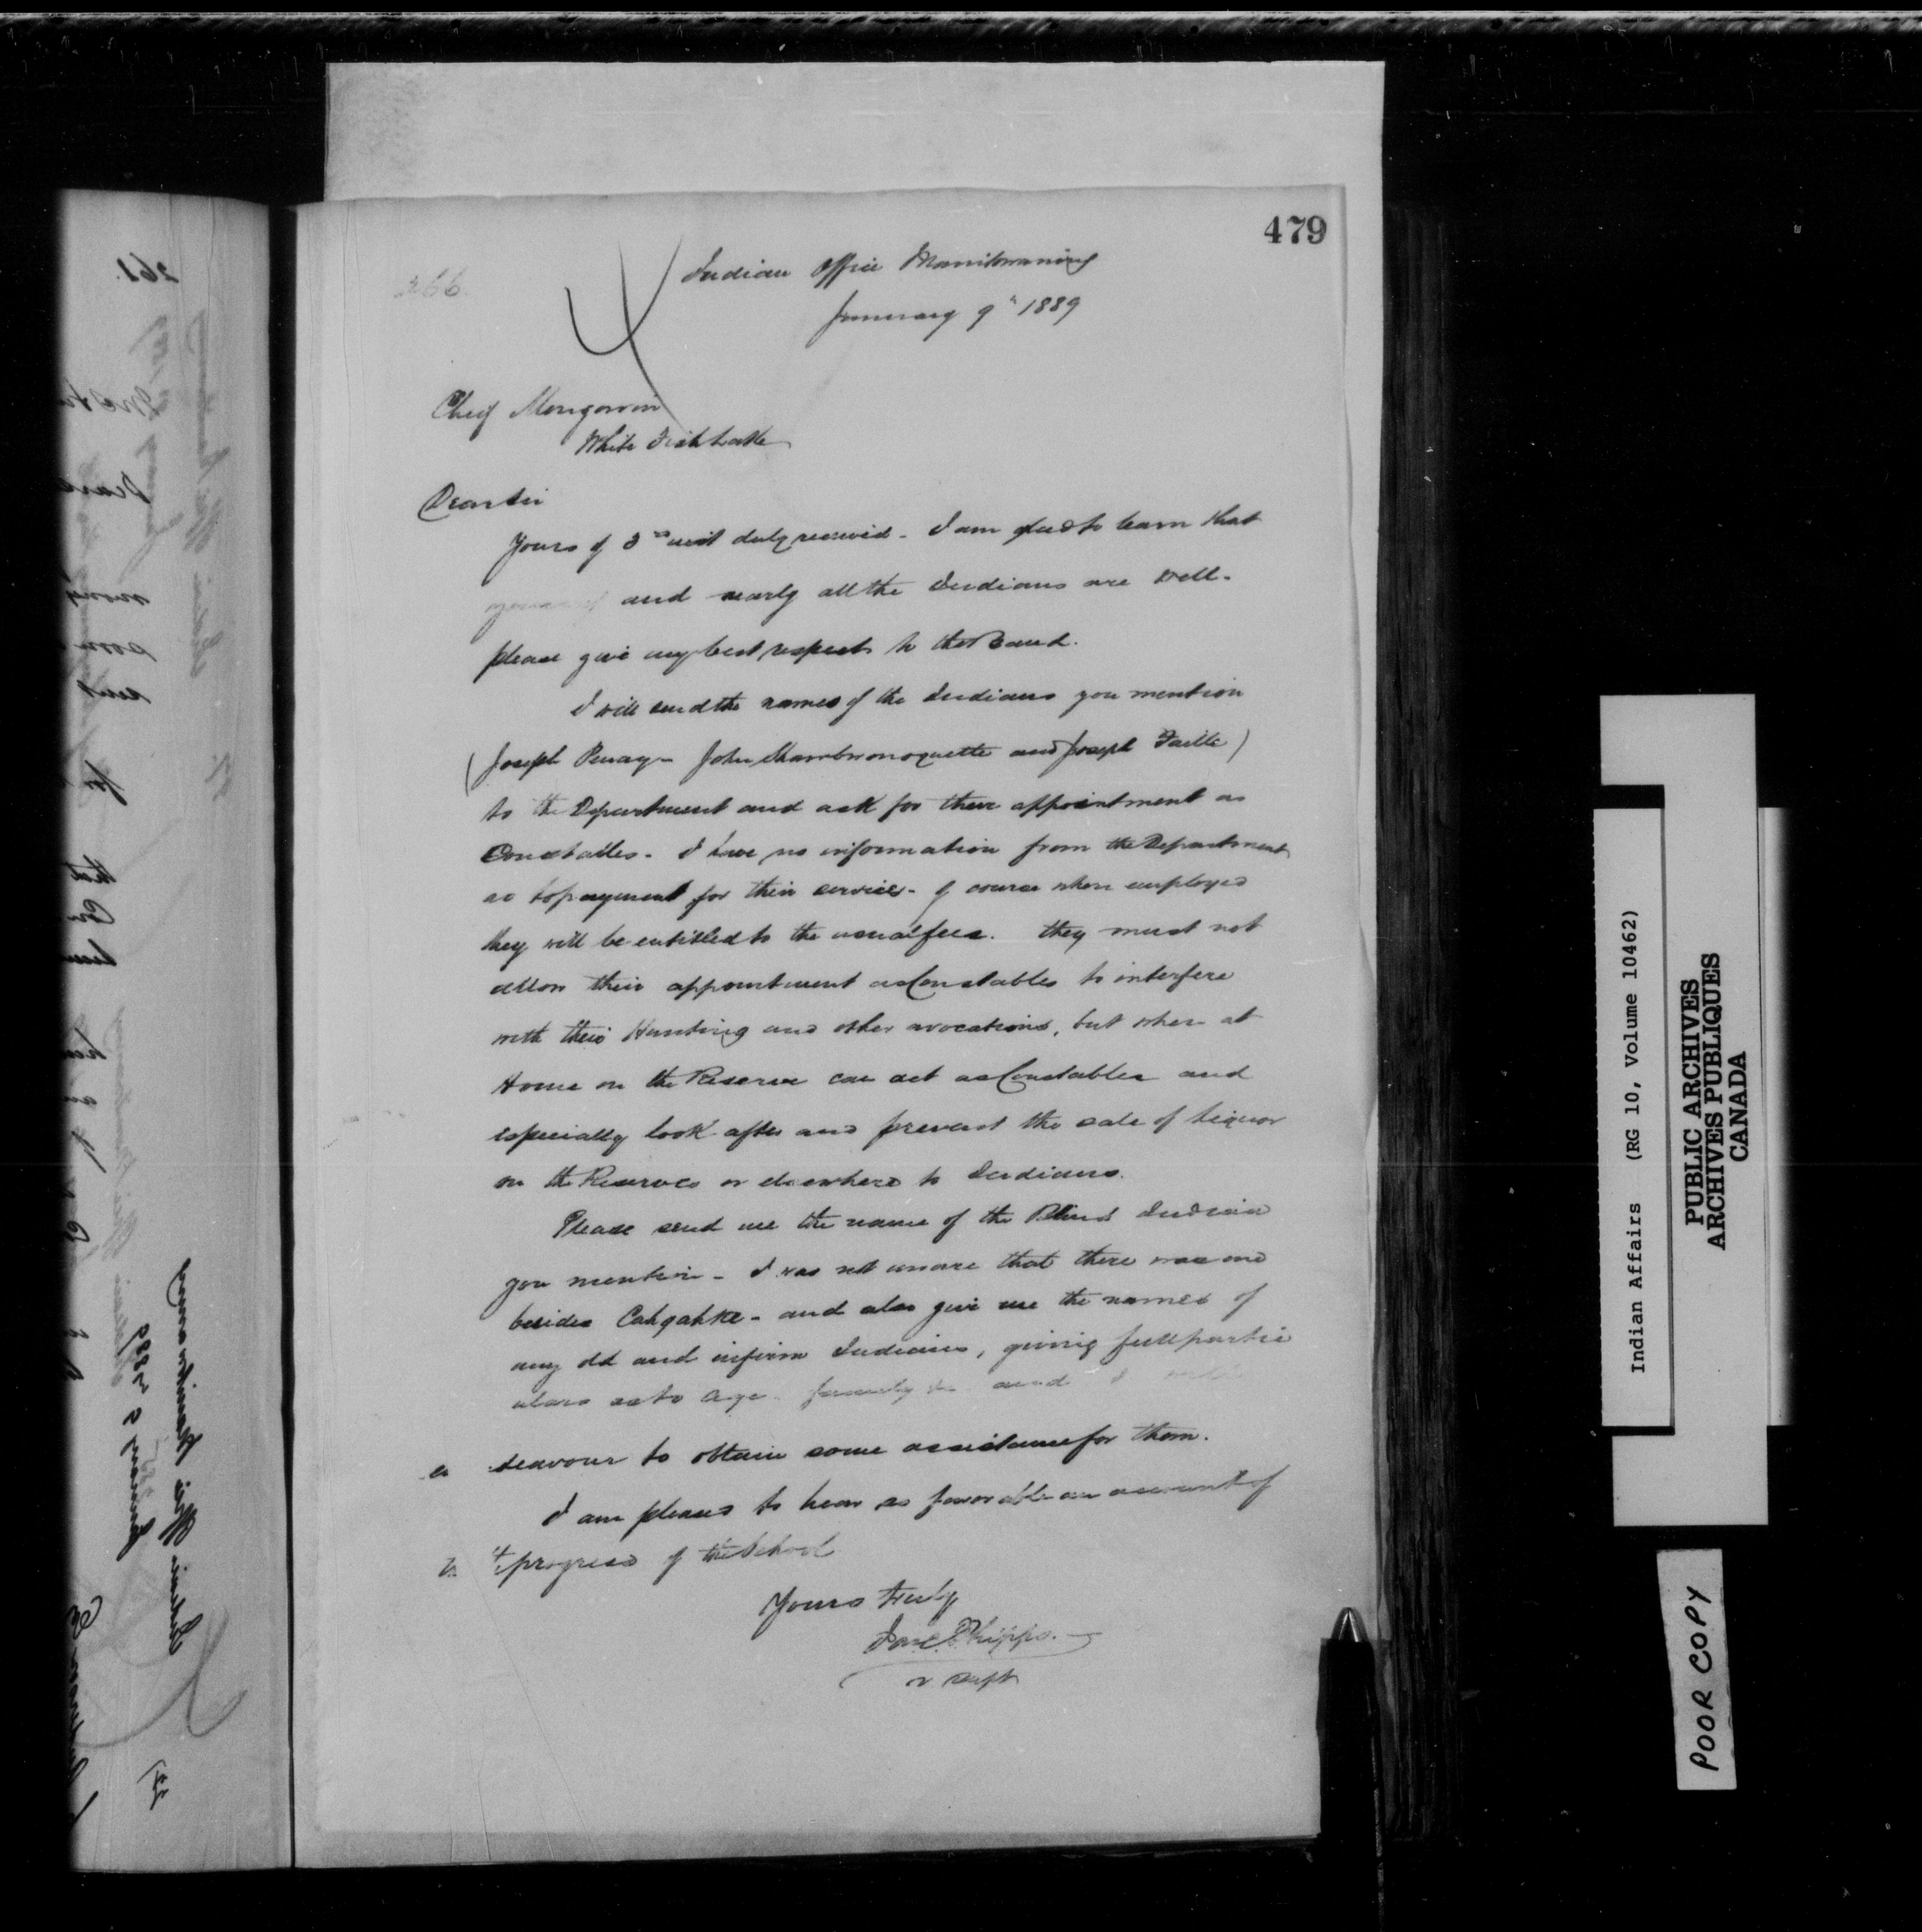 479
266
Indian Office Manitowaning
January 9th 1889
Chief Mongowin
White Fish Lake
Dear Sir
Yours of 3rd inst duly received - I am glad to learn that
yourself and nearly all the Indians are well.
please give my best respects to the Band.
I will send the names of the Indians you mention
(Joseph Penay - John and Joseph Faille)
to the Department and ask for their appointment as
Constables. I have no information from the Department
as to payment for their services - of course when employed
they will be entitled to the usual fees. they must not
allow their appointment as Constables to interfere
with their Hunting and other avocations, but when at
Home on the Reserve can act as Constables and
especially look after and prevent the sale of liquor
on the Reserves or elsewhere to Indians.
Please send me the name of the Blind Indian
you mention - I was not aware that there was one
besides Cahgahke - and also give me the names of
any old and infirm Indians, giving full partic
ulars as to age family &c and I will
en deavour to obtain some assistance for them.
I am pleased to hear so favorable an account of
the progress of the School
Yours truly
Jas C Phipps.
V Supt
Indian Affairs (RG 10, Volume 10462)
PUBLIC ARCHIVES
ARCHIVES PUBLIQUES
CANADA
POOR COPY